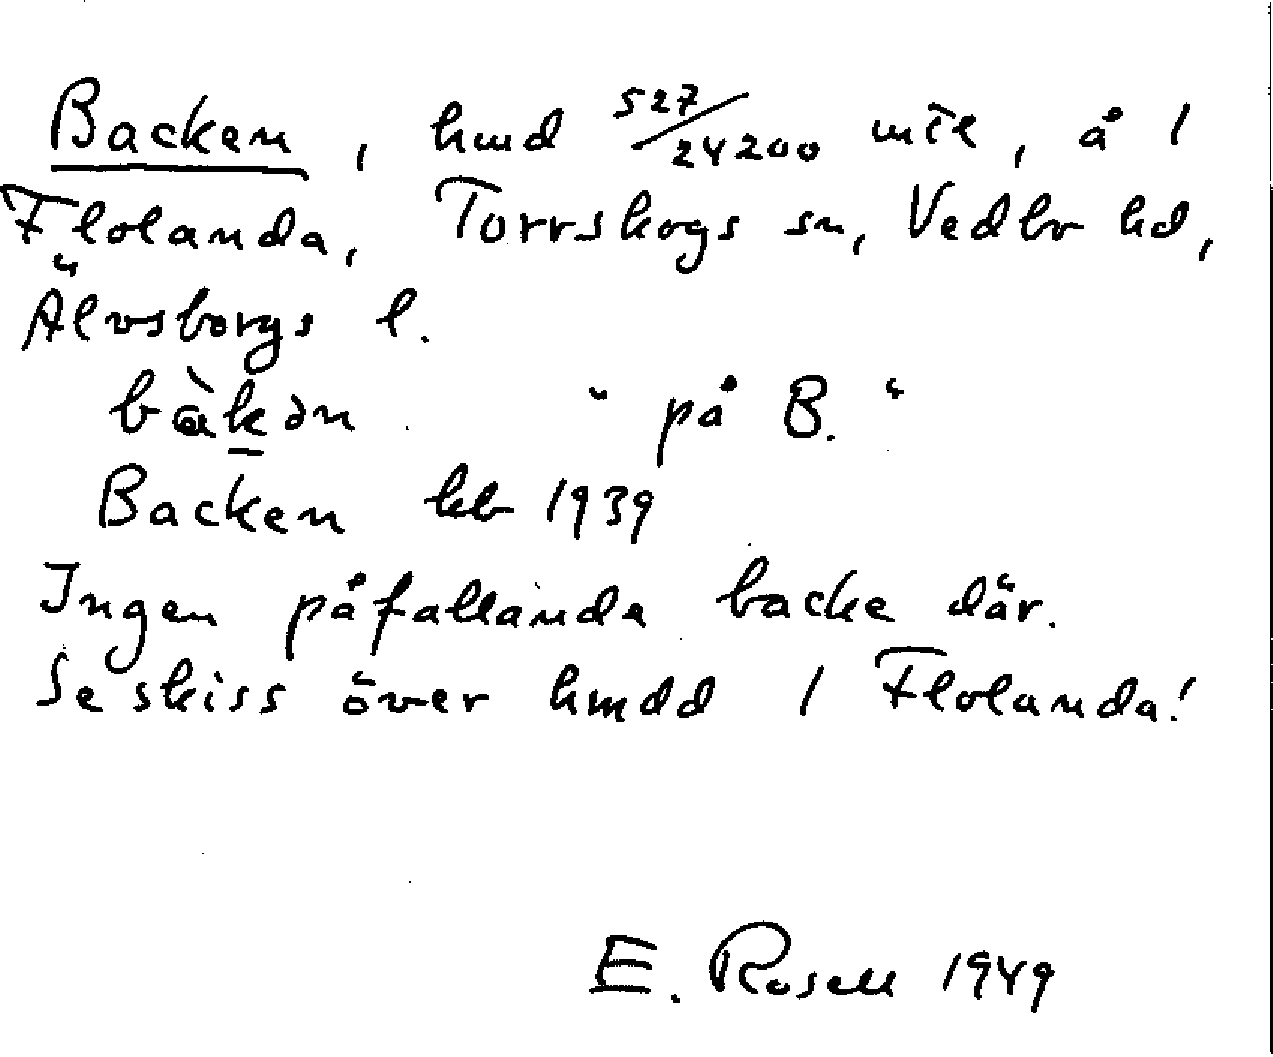 Backen, hmd 527/24200 mtl, å 1
Flolanda, Torrskogs sn, Vedbo hd,
Älvsborgs l.
bàkən "på B."
Backen kb 1939
Ingen påfallande backe där.
Se skiss över hmdd 1 Flolanda!
E. Rosell 1949